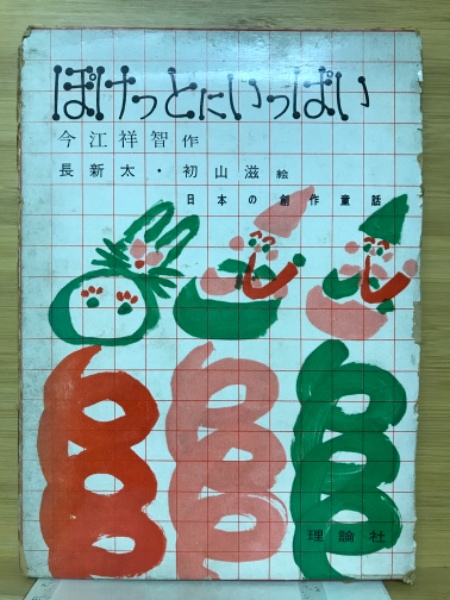 ぽけっとにいっぱい
今江祥智 作
長新太・初山滋 絵
日本の創作童話
理論社